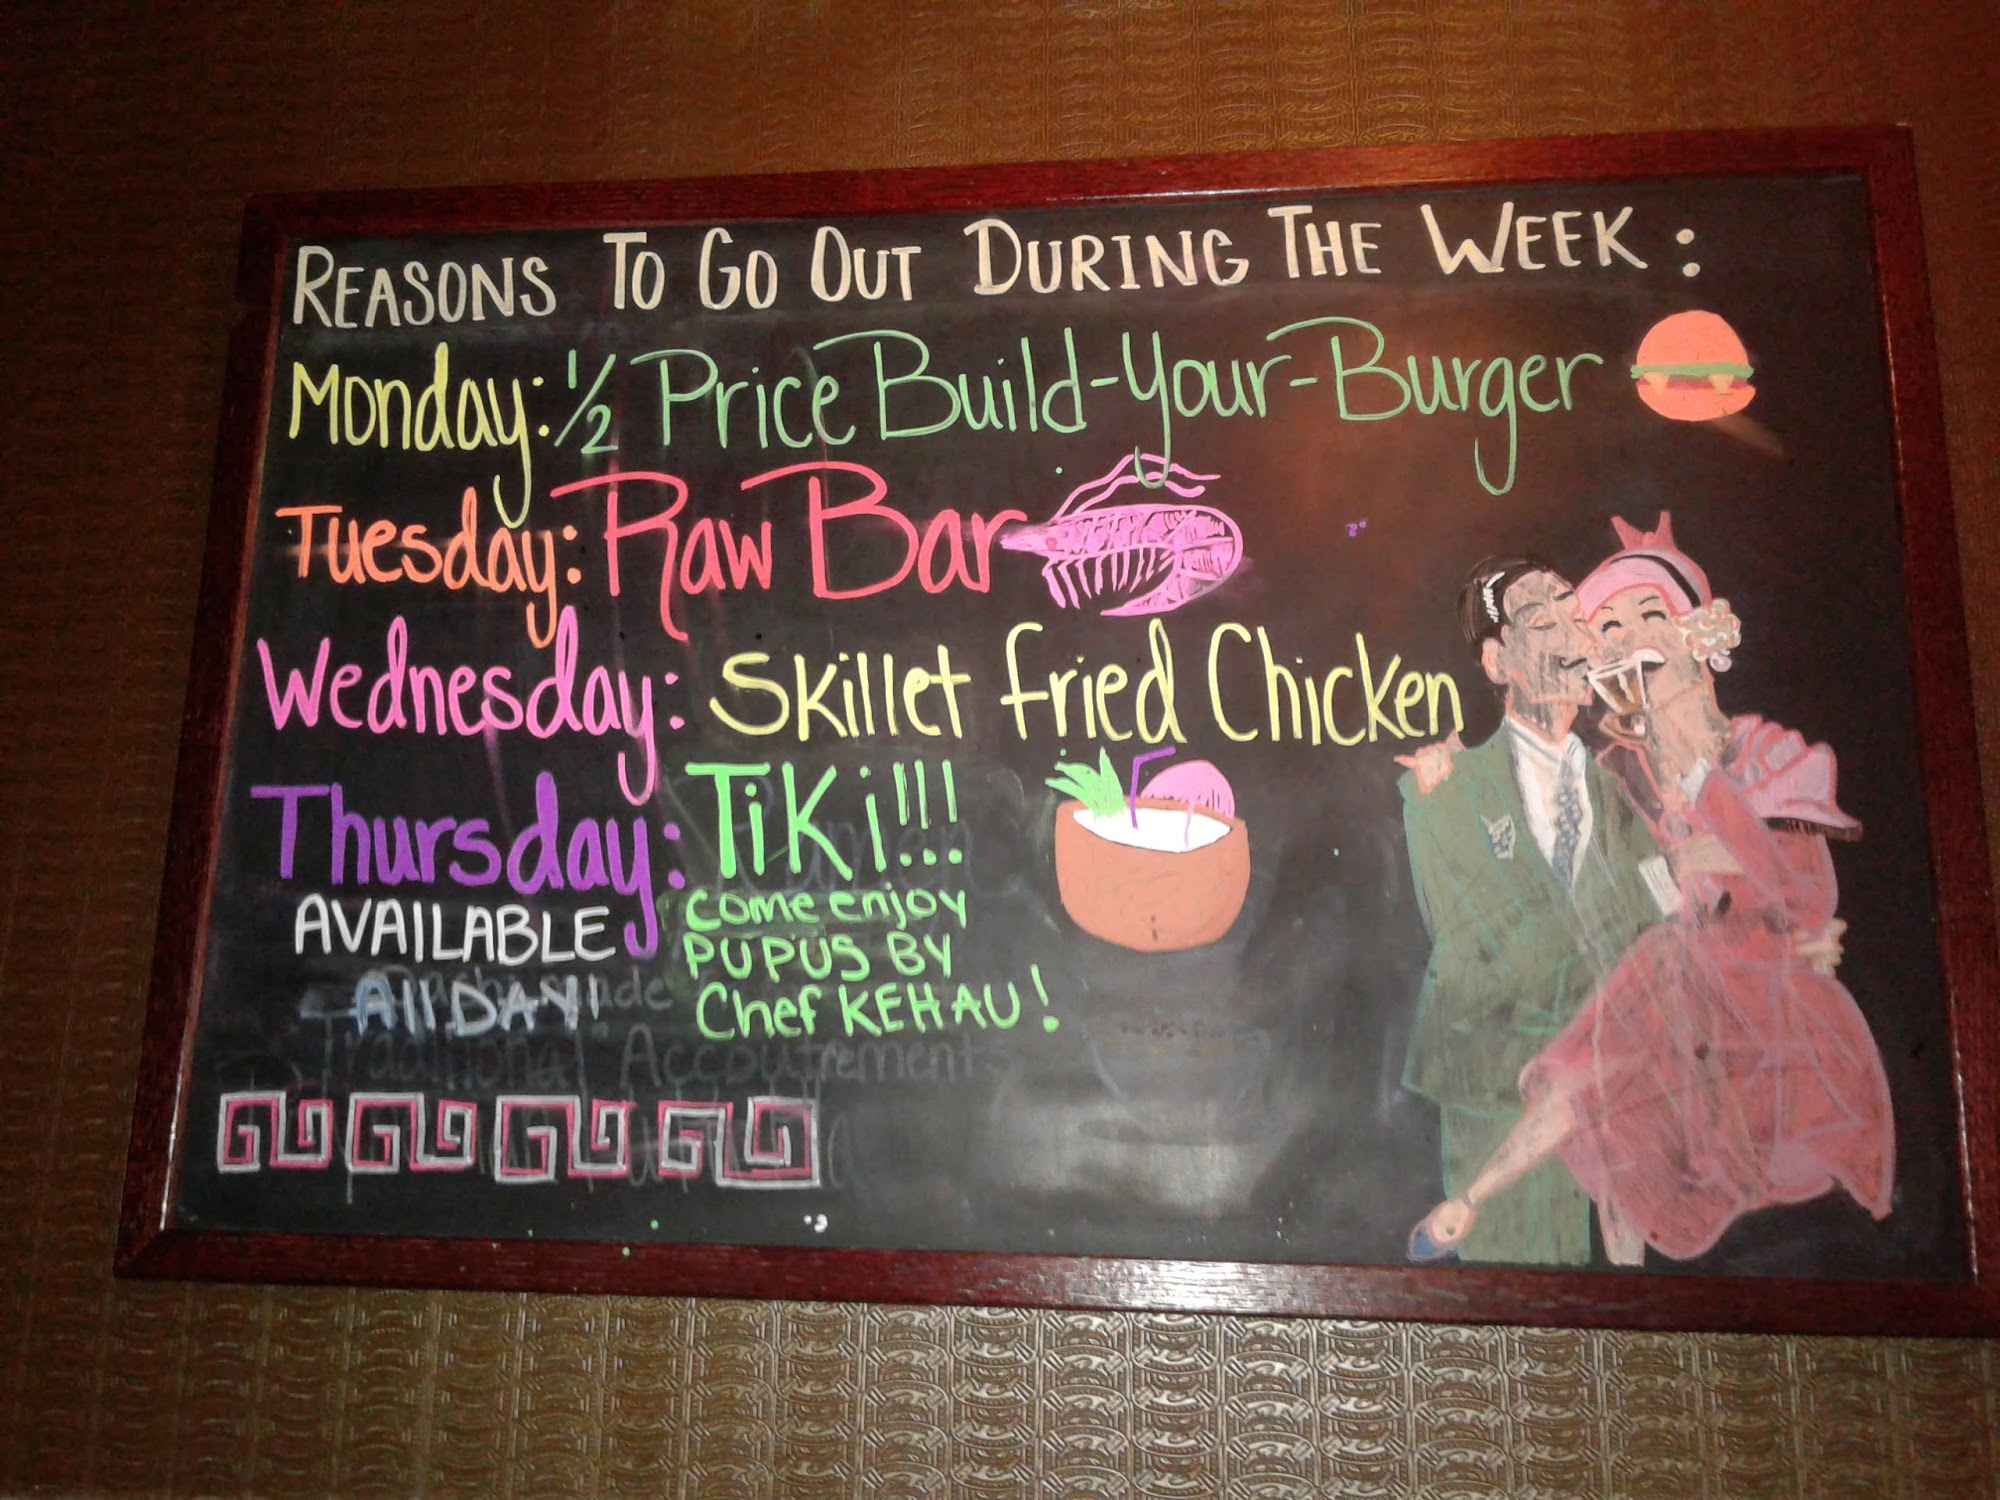 REASONS TO GO OUT DURING THE WEEK:
Monday: 1/2 Price Build-Your-Burger
Tuesday: Raw Bar
Wednesday: Skillet fried Chicken
Thursday: TiKi!!!
AVAILABLE
All DAY!
come enjoy
PUPUS BY
Chef KEHAU!
Traditional Accoutrements